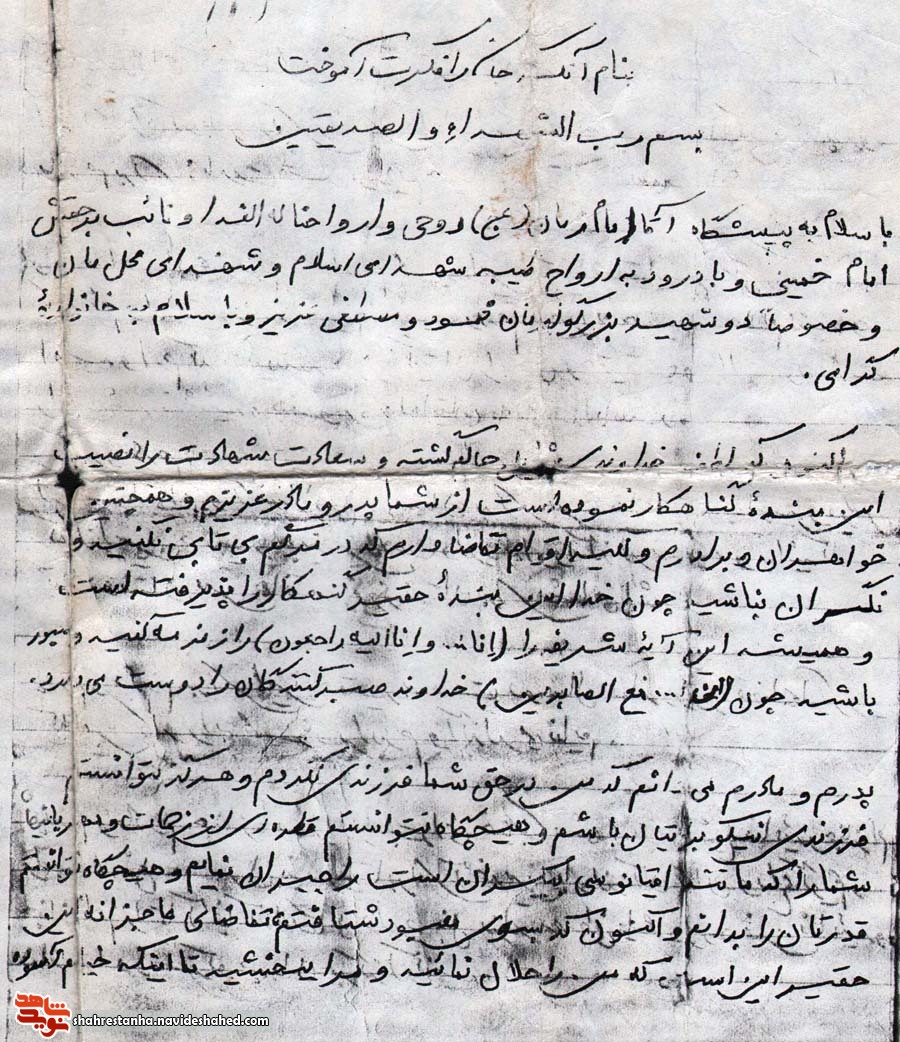 بنام آنکه جان را فکرت آموخت
بسم رب الشهداء و الصدیقین
با سلام به پیشگاه آقا امام زمان (عج) روحی و ارواحنا له الفدا و نائب برحقش
امام خمینی و با درود به ارواح طیبه شهدای اسلام و شهدای محل مان
و خصوصاً دو شهید بزرگوار مان محمود و مصطفی عزیز و با سلام به خانوادۀ
گرامی.
اکنون که لطف خداوندی شامل حالم گشته و سعادت شهادت را نصیب
این بندۀ گناهکار نموده است از شما پدر و مادر عزیزم و همچنین
خواهران و برادرم و کلیه اقوام تقاضا دارم که در مرگم بی تابی نکنید و
نگران نباشید چون خدا این بندۀ حقیر گنهکار را پذیرفته است
و همیشه این آیۀ شریفه را (انا... و انا الیه راجعون) را زمزمه کنید و صبور
باشید چون (ان ا... مع الصابرین) خداوند صبر کنندگان را دوست می دارد.
پدرم و مادرم می دانم که من در حق شما فرزندی نکردم و هرگز نتوانستم
فرزندی نیکو برایتان باشم و هیچگاه نتوانستم قطره ای از زحمات و
شما را که مانند اقیانوسی بیکران است را جبران نمایم و هیچگاه نتوانستم
قدرتان را بدانم و اکنون که بسوی معبود شتافتم تقاضائی عاجزانه این
حقیر این است که من را حلال نمائید و مرا ببخشید تا اینکه
نوید شاهد
shahrestanha-navideshahed.com